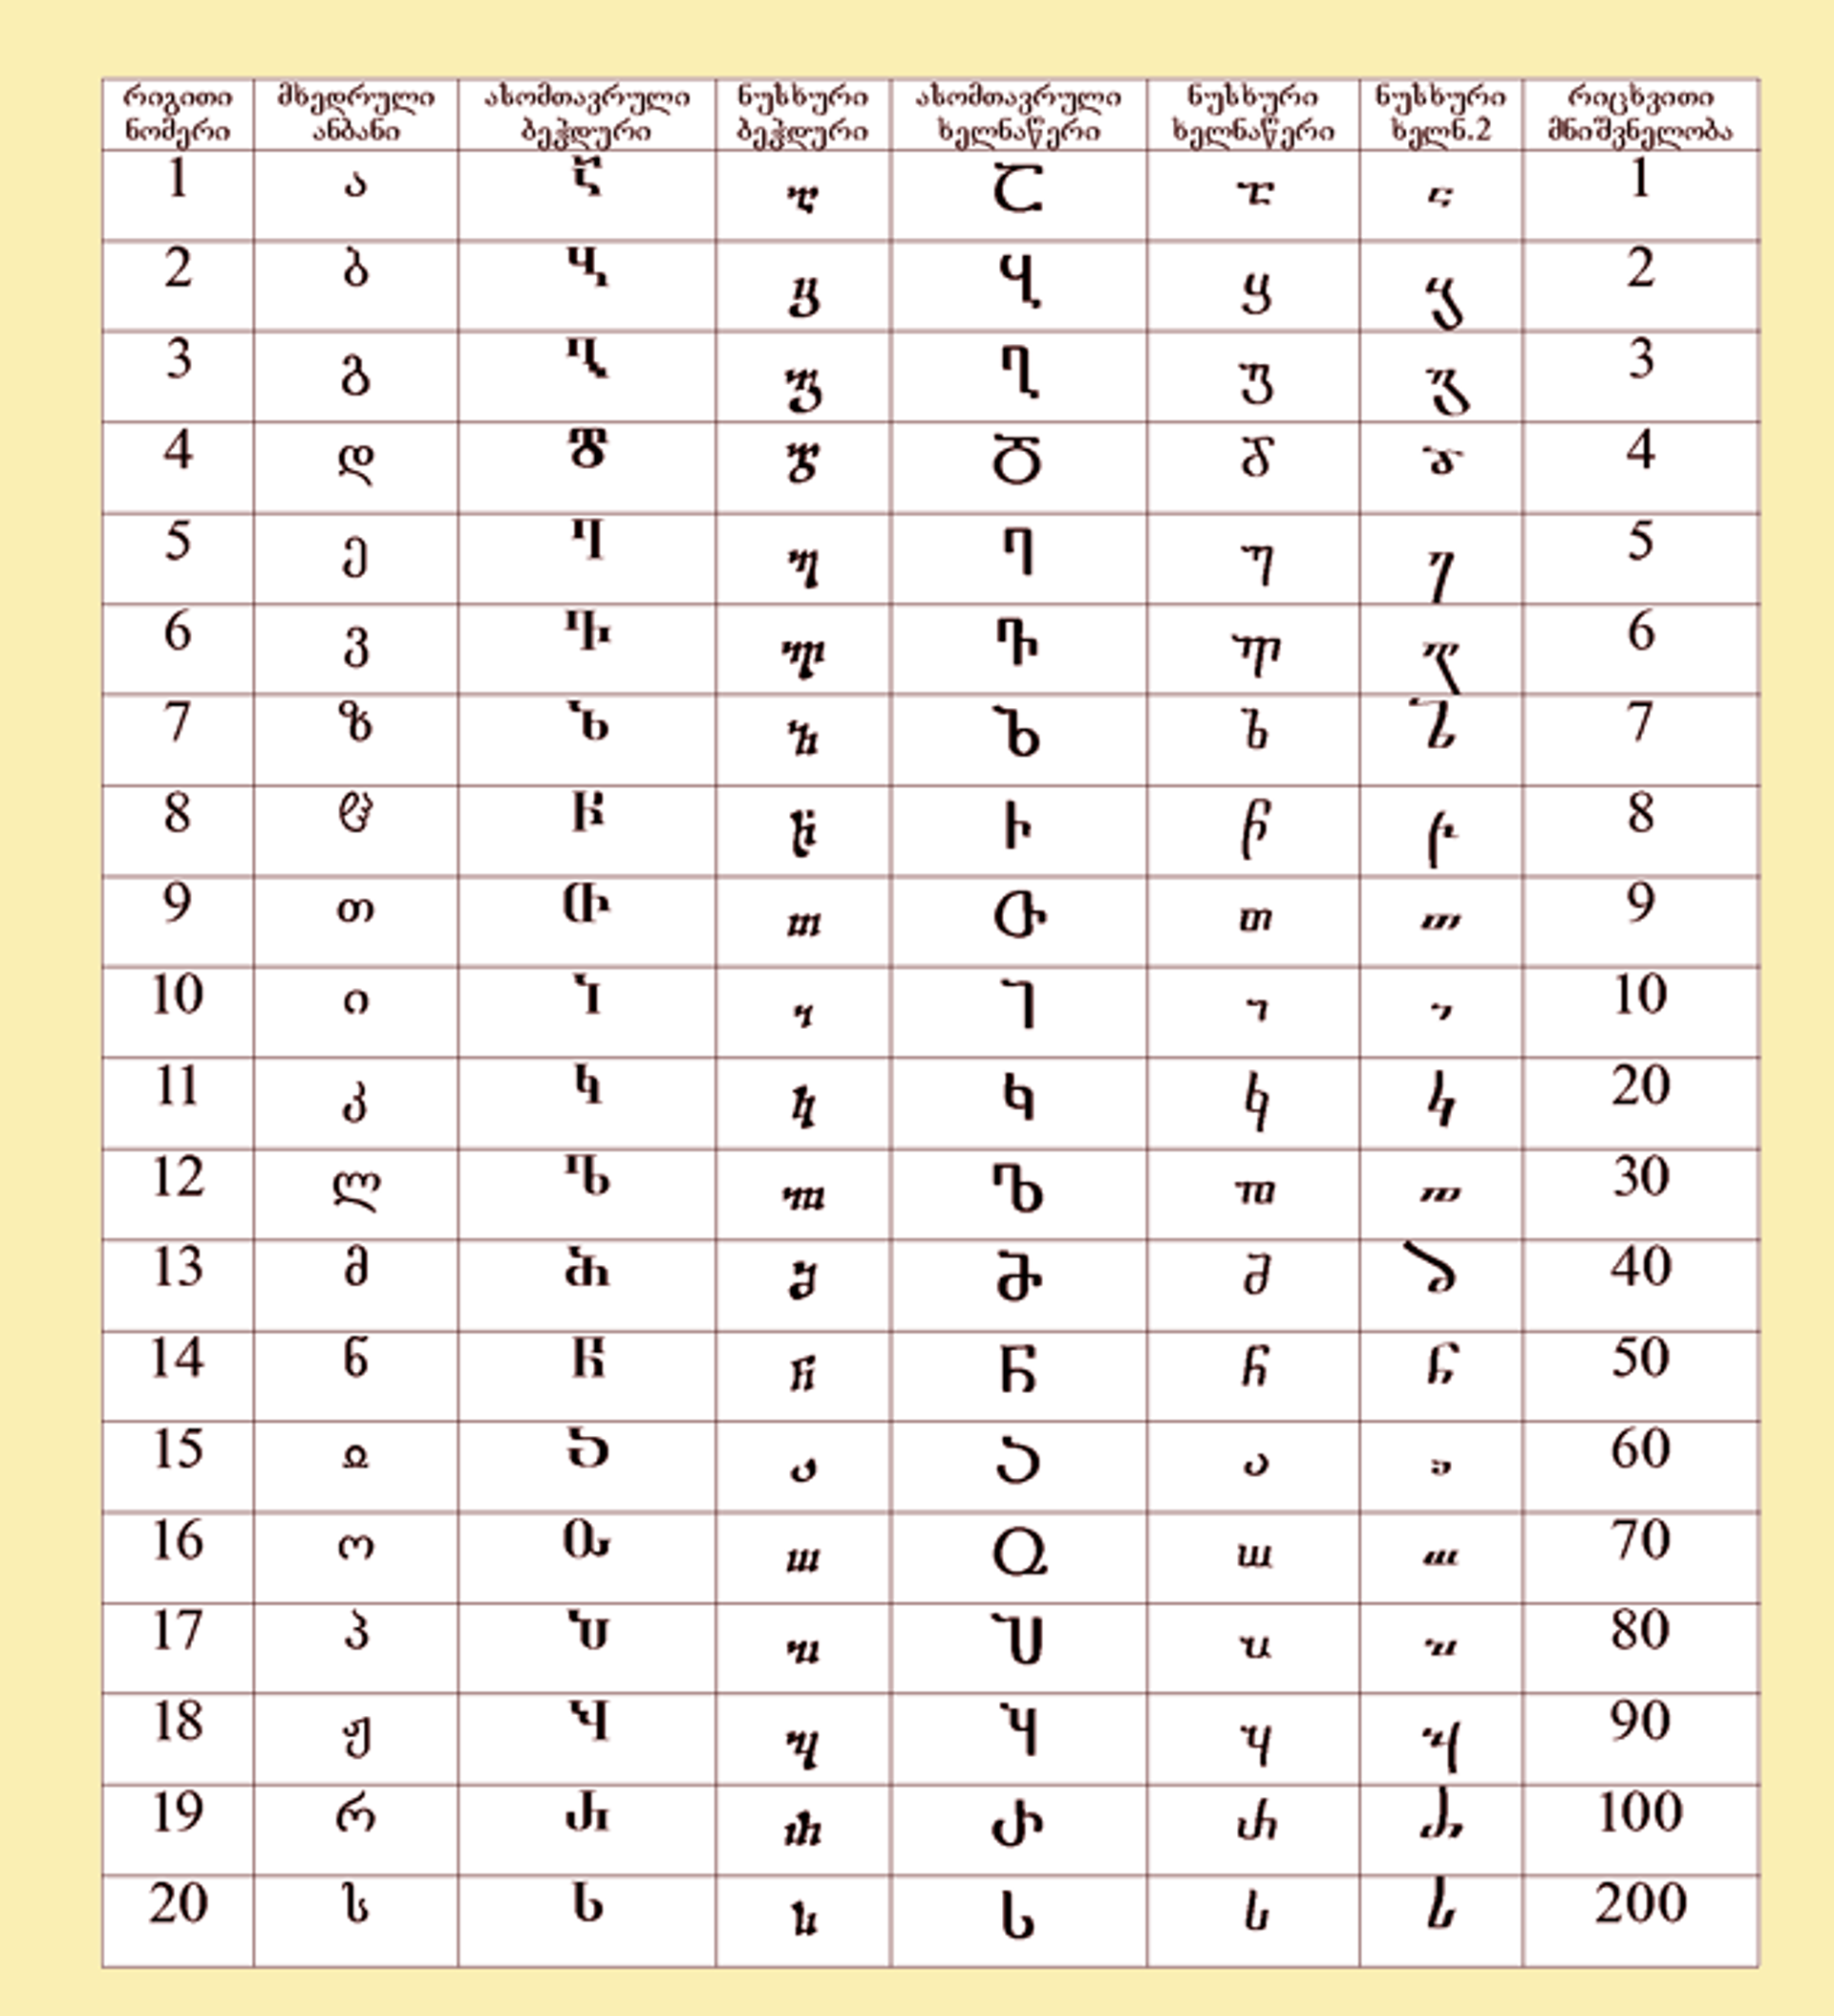 რიგითი ნომერი	მხედრული ანბანი	ასომთავრული ბეჭდური	ნუსხური ბეჭდური	ასომთავრული ხელნაწერი	ნუსხური ხელნაწერი	ნუსხური ხელნ.2	რიცხვითი მნიშვნელობა
1 ა Ⴀ ⴀ Ⴀ ⴀ ⴀ 1
2 ბ Ⴁ ⴁ Ⴁ ⴁ ⴁ 2
3 გ Ⴂ ⴂ Ⴂ ⴂ ⴂ 3
4 დ Ⴃ ⴃ Ⴃ ⴃ ⴃ 4
5 ე Ⴄ ⴄ Ⴄ ⴄ ⴄ 5
6 ვ Ⴅ ⴅ Ⴅ ⴅ ⴅ 6
7 ზ Ⴆ ⴆ Ⴆ ⴆ ⴆ 7
8 ჱ Ⴡ ⴡ Ⴡ ⴡ ⴡ 8
9 თ Ⴇ ⴇ Ⴇ ⴇ ⴇ 9
10 ი Ⴈ ⴈ Ⴈ ⴈ ⴈ 10
11 კ Ⴉ ⴉ Ⴉ ⴉ ⴉ 20
12 ლ Ⴊ ⴊ Ⴊ ⴊ ⴊ 30
13 მ Ⴋ ⴋ Ⴋ ⴋ ⴋ 40
14 ნ Ⴌ ⴌ Ⴌ ⴌ ⴌ 50
15 ჲ Ⴢ ⴢ Ⴢ ⴢ ⴢ 60
16 ო Ⴍ ⴍ Ⴍ ⴍ ⴍ 70
17 პ Ⴎ ⴎ Ⴎ ⴎ ⴎ 80
18 ჟ Ⴏ ⴏ Ⴏ ⴏ ⴏ 90
19 რ Ⴐ ⴐ Ⴐ ⴐ ⴐ 100
20 ს Ⴑ ⴑ Ⴑ ⴑ ⴑ 200